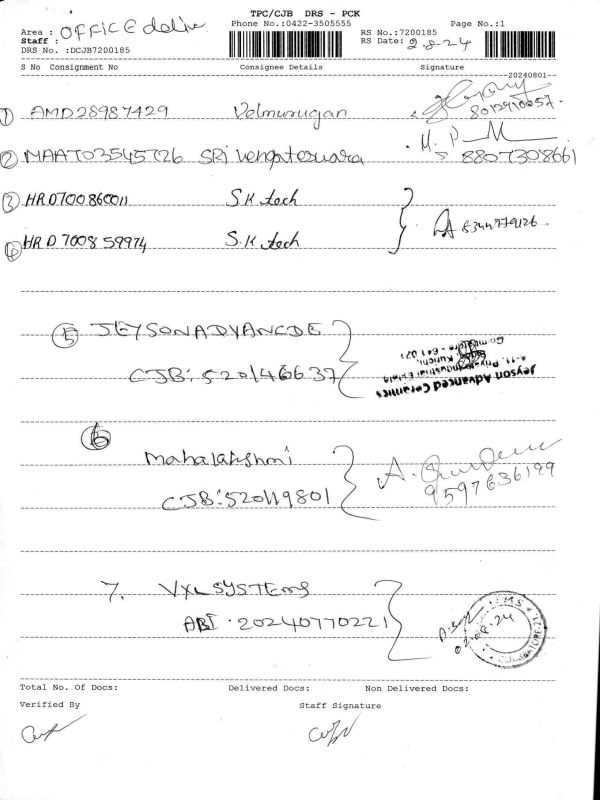 TPC/CJB DRS - PCK
Area : OFFICE
Phone No.:0422-3505555
Page No.:1
Staff :
RS No.:7200185
DRS No. :DCJB7200185
RS Date: 2-8-24
S No Consignment No Consignee Details Signature
--20240801--
1 AMD28987429 Velmurugan 8012910057
2 MAAT03545726 SRi Vengateswara 8807308661
3 HRD700860011 S.K tech
4 HRD700859974 S.K tech 6344779126
5 JEYSONADVANCDE
CJB: 520146637
Jeyson Advanced Ceramics
Coimbatore - 641 021
6
Mahalakshmi
CJB:520119801
9597636199
7. VXL SYSTEMS
ABI . 20240770221
02.08.24
Total No. Of Docs: Delivered Docs: Non Delivered Docs:
Verified By Staff Signature